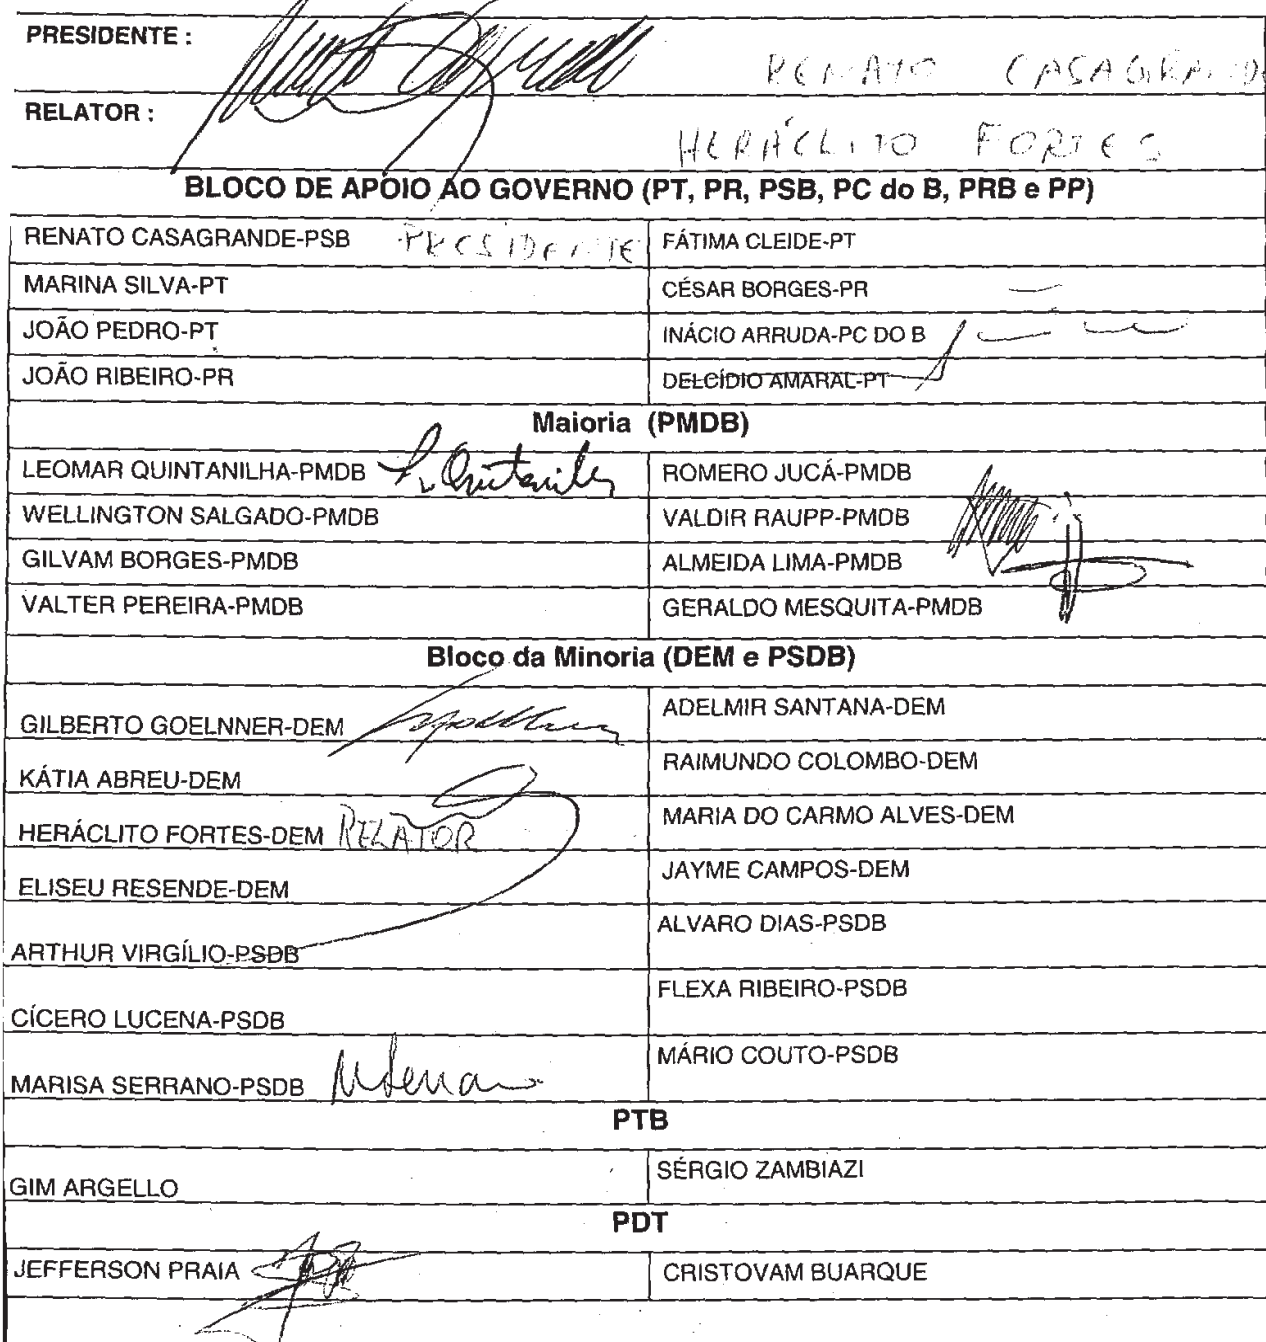 PRESIDENTE :
RENATO CASAGRANDE
RELATOR :
HERÁCLITO FORTES
BLOCO DE APOIO AO GOVERNO (PT, PR, PSB, PC do B, PRB e PP)
RENATO CASAGRANDE-PSB PRESIDENTE FÁTIMA CLEIDE-PT
MARINA SILVA-PT CÉSAR BORGES-PR
JOÃO PEDRO-PT INÁCIO ARRUDA-PC DO B
JOÃO RIBEIRO-PR DELCÍDIO AMARAL-PT
Maioria (PMDB)
LEOMAR QUINTANILHA-PMDB L. Quintanilha ROMERO JUCÁ-PMDB
WELLINGTON SALGADO-PMDB VALDIR RAUPP-PMDB
GILVAM BORGES-PMDB ALMEIDA LIMA-PMDB
VALTER PEREIRA-PMDB GERALDO MESQUITA-PMDB
Bloco da Minoria (DEM e PSDB)
GILBERTO GOELNNER-DEM ADELMIR SANTANA-DEM
KÁTIA ABREU-DEM RAIMUNDO COLOMBO-DEM
HERÁCLITO FORTES-DEM RELATOR MARIA DO CARMO ALVES-DEM
ELISEU RESENDE-DEM JAYME CAMPOS-DEM
ARTHUR VIRGÍLIO-PSDB ALVARO DIAS-PSDB
CÍCERO LUCENA-PSDB FLEXA RIBEIRO-PSDB
MARISA SERRANO-PSDB MÁRIO COUTO-PSDB
PTB
GIM ARGELLO SÉRGIO ZAMBIAZI
PDT
JEFFERSON PRAIA CRISTOVAM BUARQUE